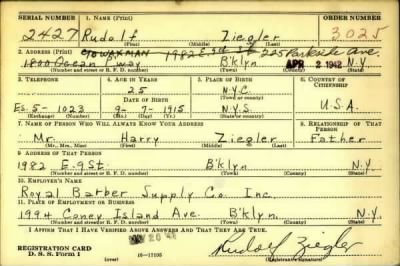 SERIAL NUMBER 1. NAME (Print) ORDER NUMBER
2427 Rudolf Ziegler 3025
(First) (Middle) (Last)
2. ADDRESS (Print) c/o WAXMAN 1982 E. 9th St 225 Parkside Ave.
1800 Ocean P'way B'klyn APR 2 1942 N.Y.
(Number and street or R. F. D. number) (Town) (County) (State)
3. TELEPHONE 4. AGE IN YEARS 5. PLACE OF BIRTH 6. COUNTRY OF CITIZENSHIP
25 N.Y.C.
(Town or county)
Es. 5- 1023 9- 7- 1915 N.Y.S. U.S.A.
(Exchange) (Number) (Mo.) (Day) (Yr.) (State or country)
7. NAME OF PERSON WHO WILL ALWAYS KNOW YOUR ADDRESS 8. RELATIONSHIP OF THAT PERSON
Mr. Harry Ziegler Father
(Mr., Mrs., Miss) (First) (Middle) (Last)
9. ADDRESS OF THAT PERSON
1982 E. 9 St. B'klyn N.Y.
(Number and street or R. F. D. number) (Town) (County) (State)
10. EMPLOYER'S NAME
Royal Barber Supply Co. Inc.
11. PLACE OF EMPLOYMENT OR BUSINESS
1994 Coney Island Ave. B'klyn. N.Y.
(Number and street or R. F. D. number) (Town) (County) (State)
I AFFIRM THAT I HAVE VERIFIED ABOVE ANSWERS AND THAT THEY ARE TRUE.
REGISTRATION CARD
D. S. S. Form 1 (over) 16-17105 Rudolf Ziegler
(Registrant's signature)